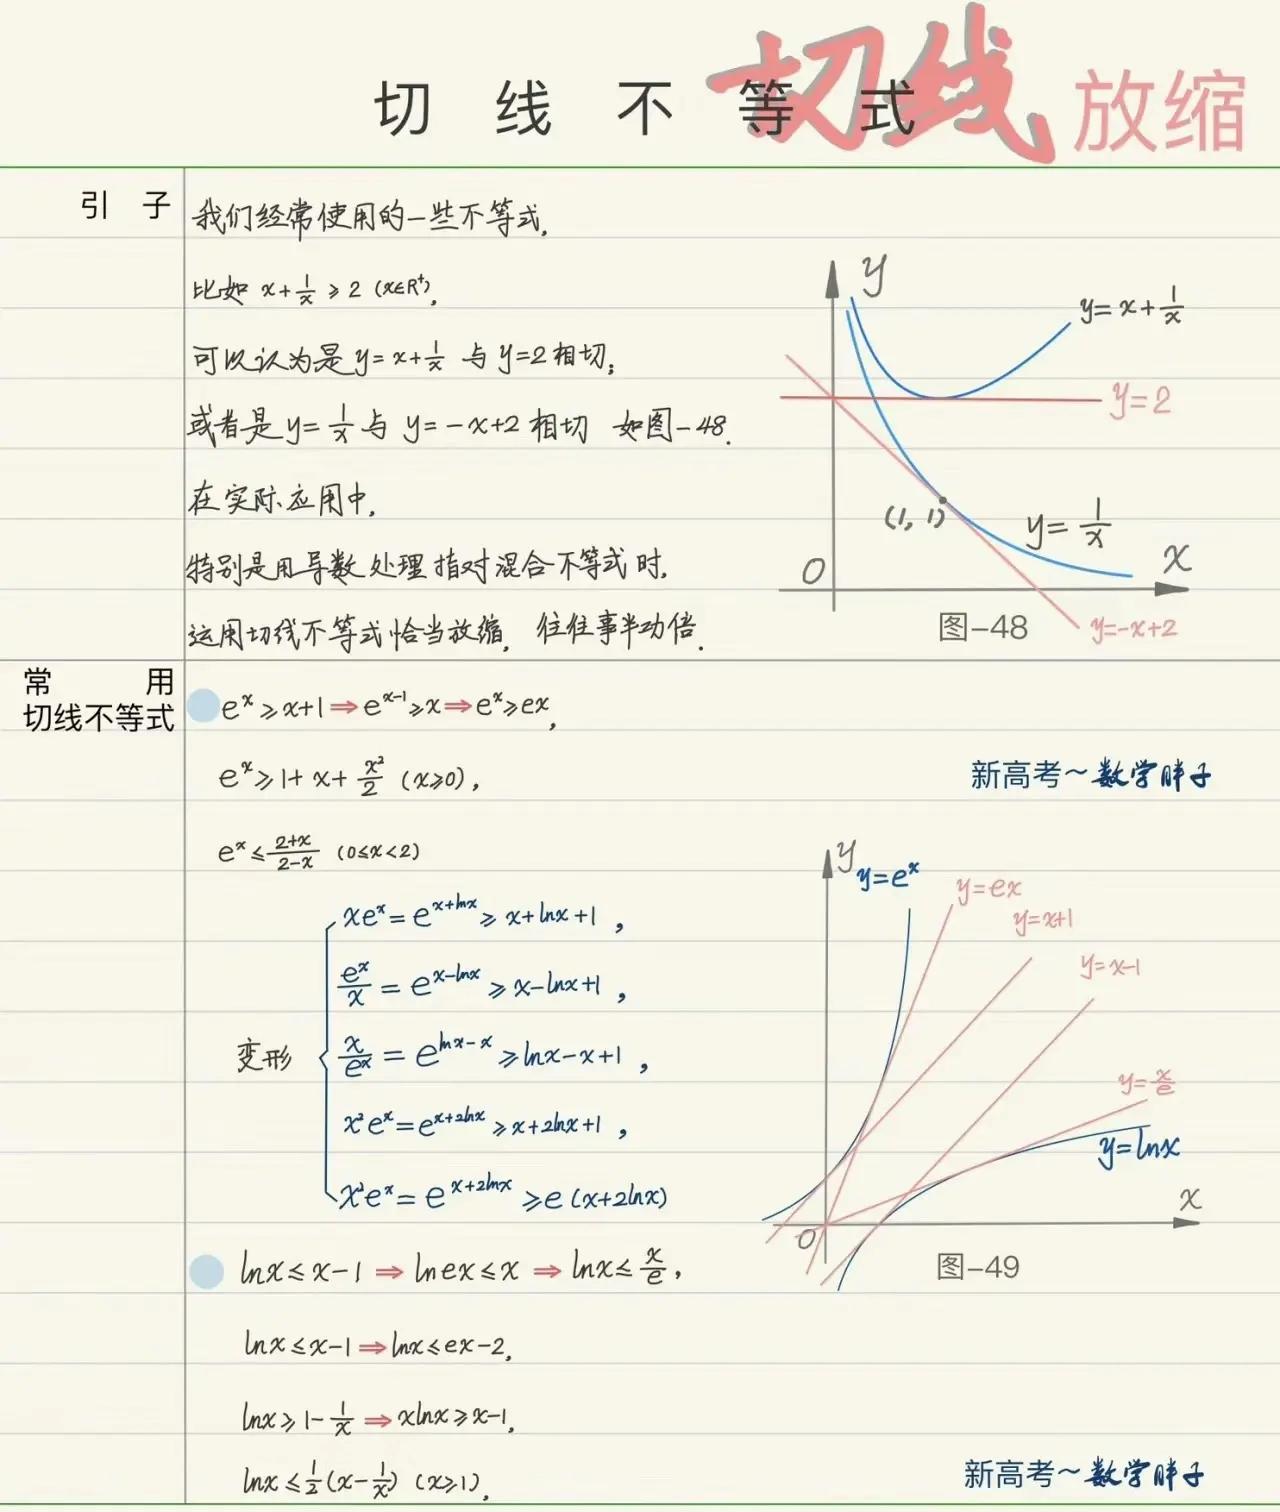 切线不等式
切线放缩
引子
我们经常使用的一些不等式,
比如 x+1/x ≥ 2 (x∈R⁺),
可以认为是 y=x+1/x 与 y=2 相切;
或者是 y=1/x 与 y=-x+2 相切 如图-48.
在实际应用中,
特别是用导数处理指对混合不等式时,
运用切线不等式恰当放缩, 往往事半功倍.
y
y=x+1/x
y=2
(1, 1)
y=1/x
x
O
图-48
y=-x+2
常用
切线不等式
eˣ≥x+1⇒eˣ⁻¹≥x⇒eˣ≥ex,
eˣ≥1+x+x²/2 (x≥0),
新高考~数学胖子
eˣ≤(2+x)/(2-x) (0≤x<2)
变形
xeˣ=e^(x+lnx)≥x+lnx+1,
eˣ/x=e^(x-lnx)≥x-lnx+1,
x/eˣ=e^(lnx-x)≥lnx-x+1,
x²eˣ=e^(x+2lnx)≥x+2lnx+1,
x²eˣ=e^(x+2lnx)≥e(x+2lnx)
y
y=eˣ
y=ex
y=x+1
y=x-1
y=x/e
y=lnx
x
O
图-49
lnx≤x-1⇒lnex≤x⇒lnx≤x/e,
lnx≤x-1⇒lnx≤ex-2,
lnx≥1-1/x⇒xlnx≥x-1,
lnx≤1/2(x-1/x) (x≥1),
新高考~数学胖子